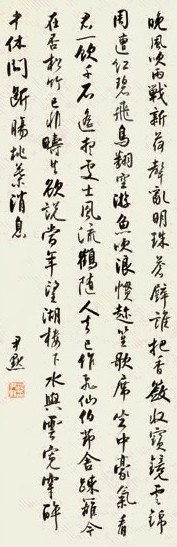 晚風吹雨戰新荷聲亂明珠蒼璧誰把香奩收寶鏡雲錦
周遭紅碧飛鳥翻空游魚吹浪慣趁笙歌席坐中豪氣看
君一飲千石遙想處士風流鶴隨人去已作飛仙伯茆舍疎籬今
在否松竹已非疇昔欲說當年望湖樓下水與雲寬窄醉
中休問斷腸桃葉消息
尹默